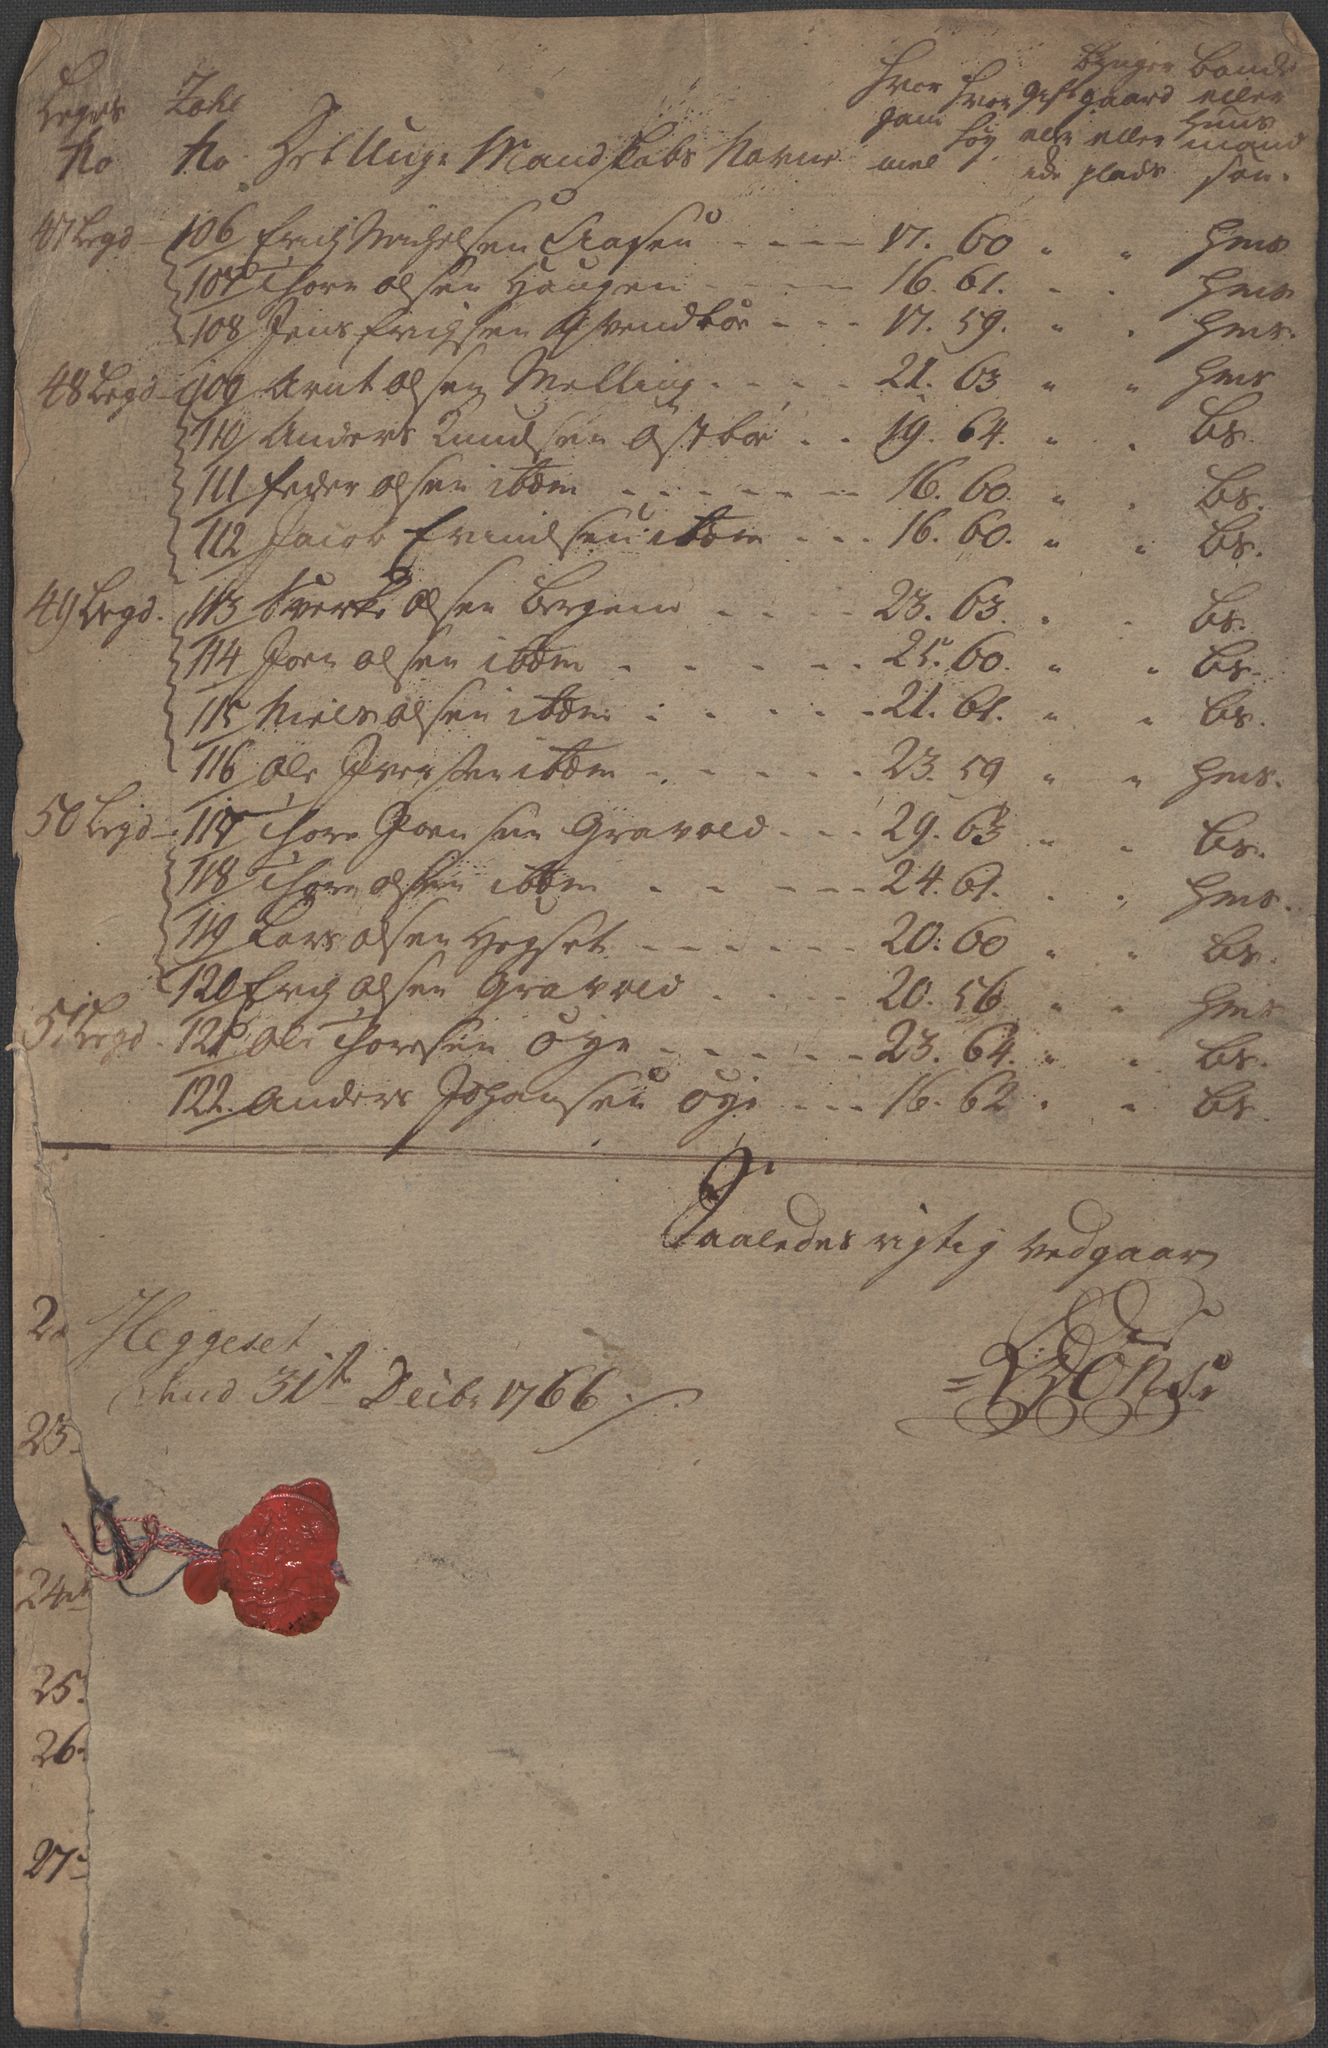 Legds No
Tahl No
Det Unge Mandskabs Navne
Hvor gam mel
Hvor høy
Gift eller ide
Bygger gaard eller plads
Bonde eller Huus mand søn.
47 Legd 106 Erich Michelsen Aasen 17. 60 " " Hms
107 Thore Olsen Haugen 16. 61. " " Hms
108 Jens Erichsen Qvendbøe 17. 59. " " Hms.
48 Legd 109 Arnt Olsen Melling 21. 63 " " Hms
110 Anders Knudsen Østbøe 19. 64. " " Bs.
111 Peder Olsen ibdm 16. 60. " " Bs.
112 Jacob Evindsen ibdm 16. 60. " " Bs.
49 Legd. 113 Sverke Olsen Bergem 23. 63. " " Bs.
114 Joen Olsen ibdm 25. 60. " " Bs.
115 Niels Olsen ibdm 21. 61. " " Bs.
116 Ole Iversen ibdm 23. 59 " " Hms.
50 Legd 117 Thore Joensen Gravold 29. 63 " " Bs.
118 Thore Olsen ibdm 24. 61. " " Hms.
119 Lars Olsen Hegset 20. 60 " " Bs.
120 Erich Olsen Gravold 20. 56 " " Hms
51 Legd 121 Ole Thoresen Øye 23. 64. " " Bs.
122. Anders Johansen Øye 16. 62 " " Bs.
Saaledes rigtig vedgaar
Heggeset
31te Decbr 1766
23
24
25.
26
27